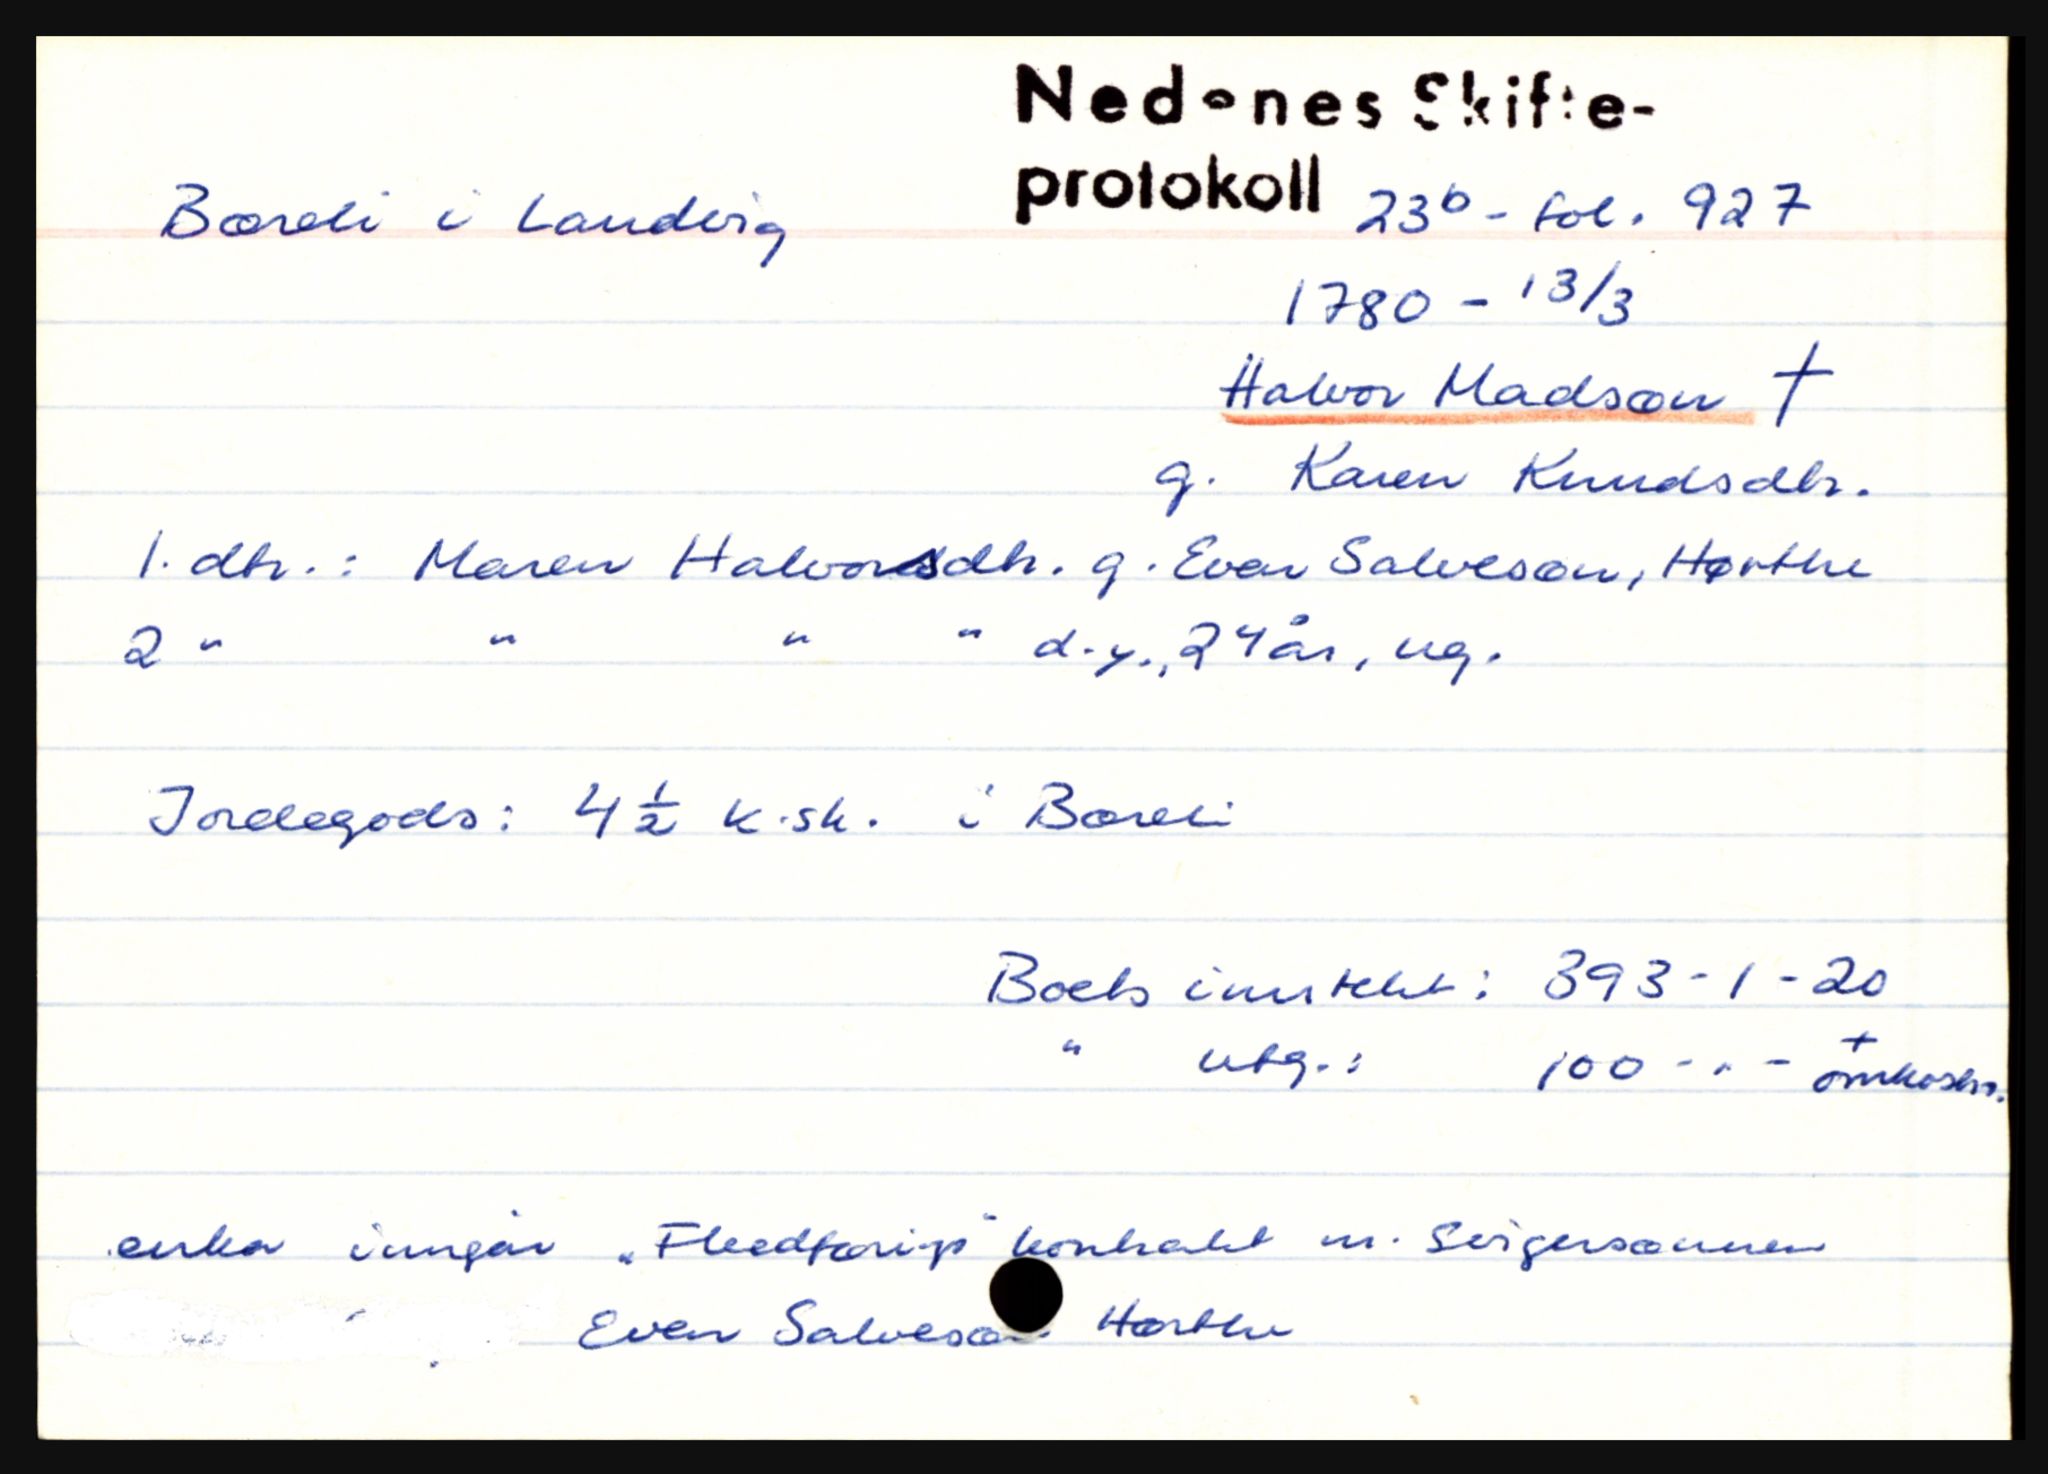 Nedenes Skifte-
protokoll 23b - fol. 927
Bæreli i Landvig
1780 - 13/3
Halvor Madsøn †
g. Karen Knudsdtr.
1. dtr.: Maren Halvorsdtr. g. Even Salvesøn, Hørthe
2 " " " " d.y., 24 år, ug.
Jordegods: 4 ½ k.sk. i Bæreli
Boets inntekt: 393 - 1 - 20
" utg.: 100 - " - + omkostn.
enka inngår „Fledføring" kontrakt m. svigersønnen
Even Salvesøn Hørthe